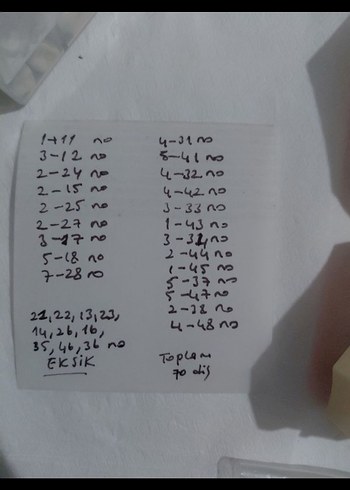 1-11 no
3-12 no
2-24 no
2-15 no
2-25 no
2-27 no
3-17 no
5-18 no
7-28 no
21,22,13,23,
14,26,16,
35,46,36 no
EKSİK
4-31 no
5-41 no
4-32 no
4-42 no
3-33 no
1-43 no
3-34 no
2-44 no
1-45 no
5-37 no
5-47 no
2-38 no
4-48 no
Toplam
70 diş